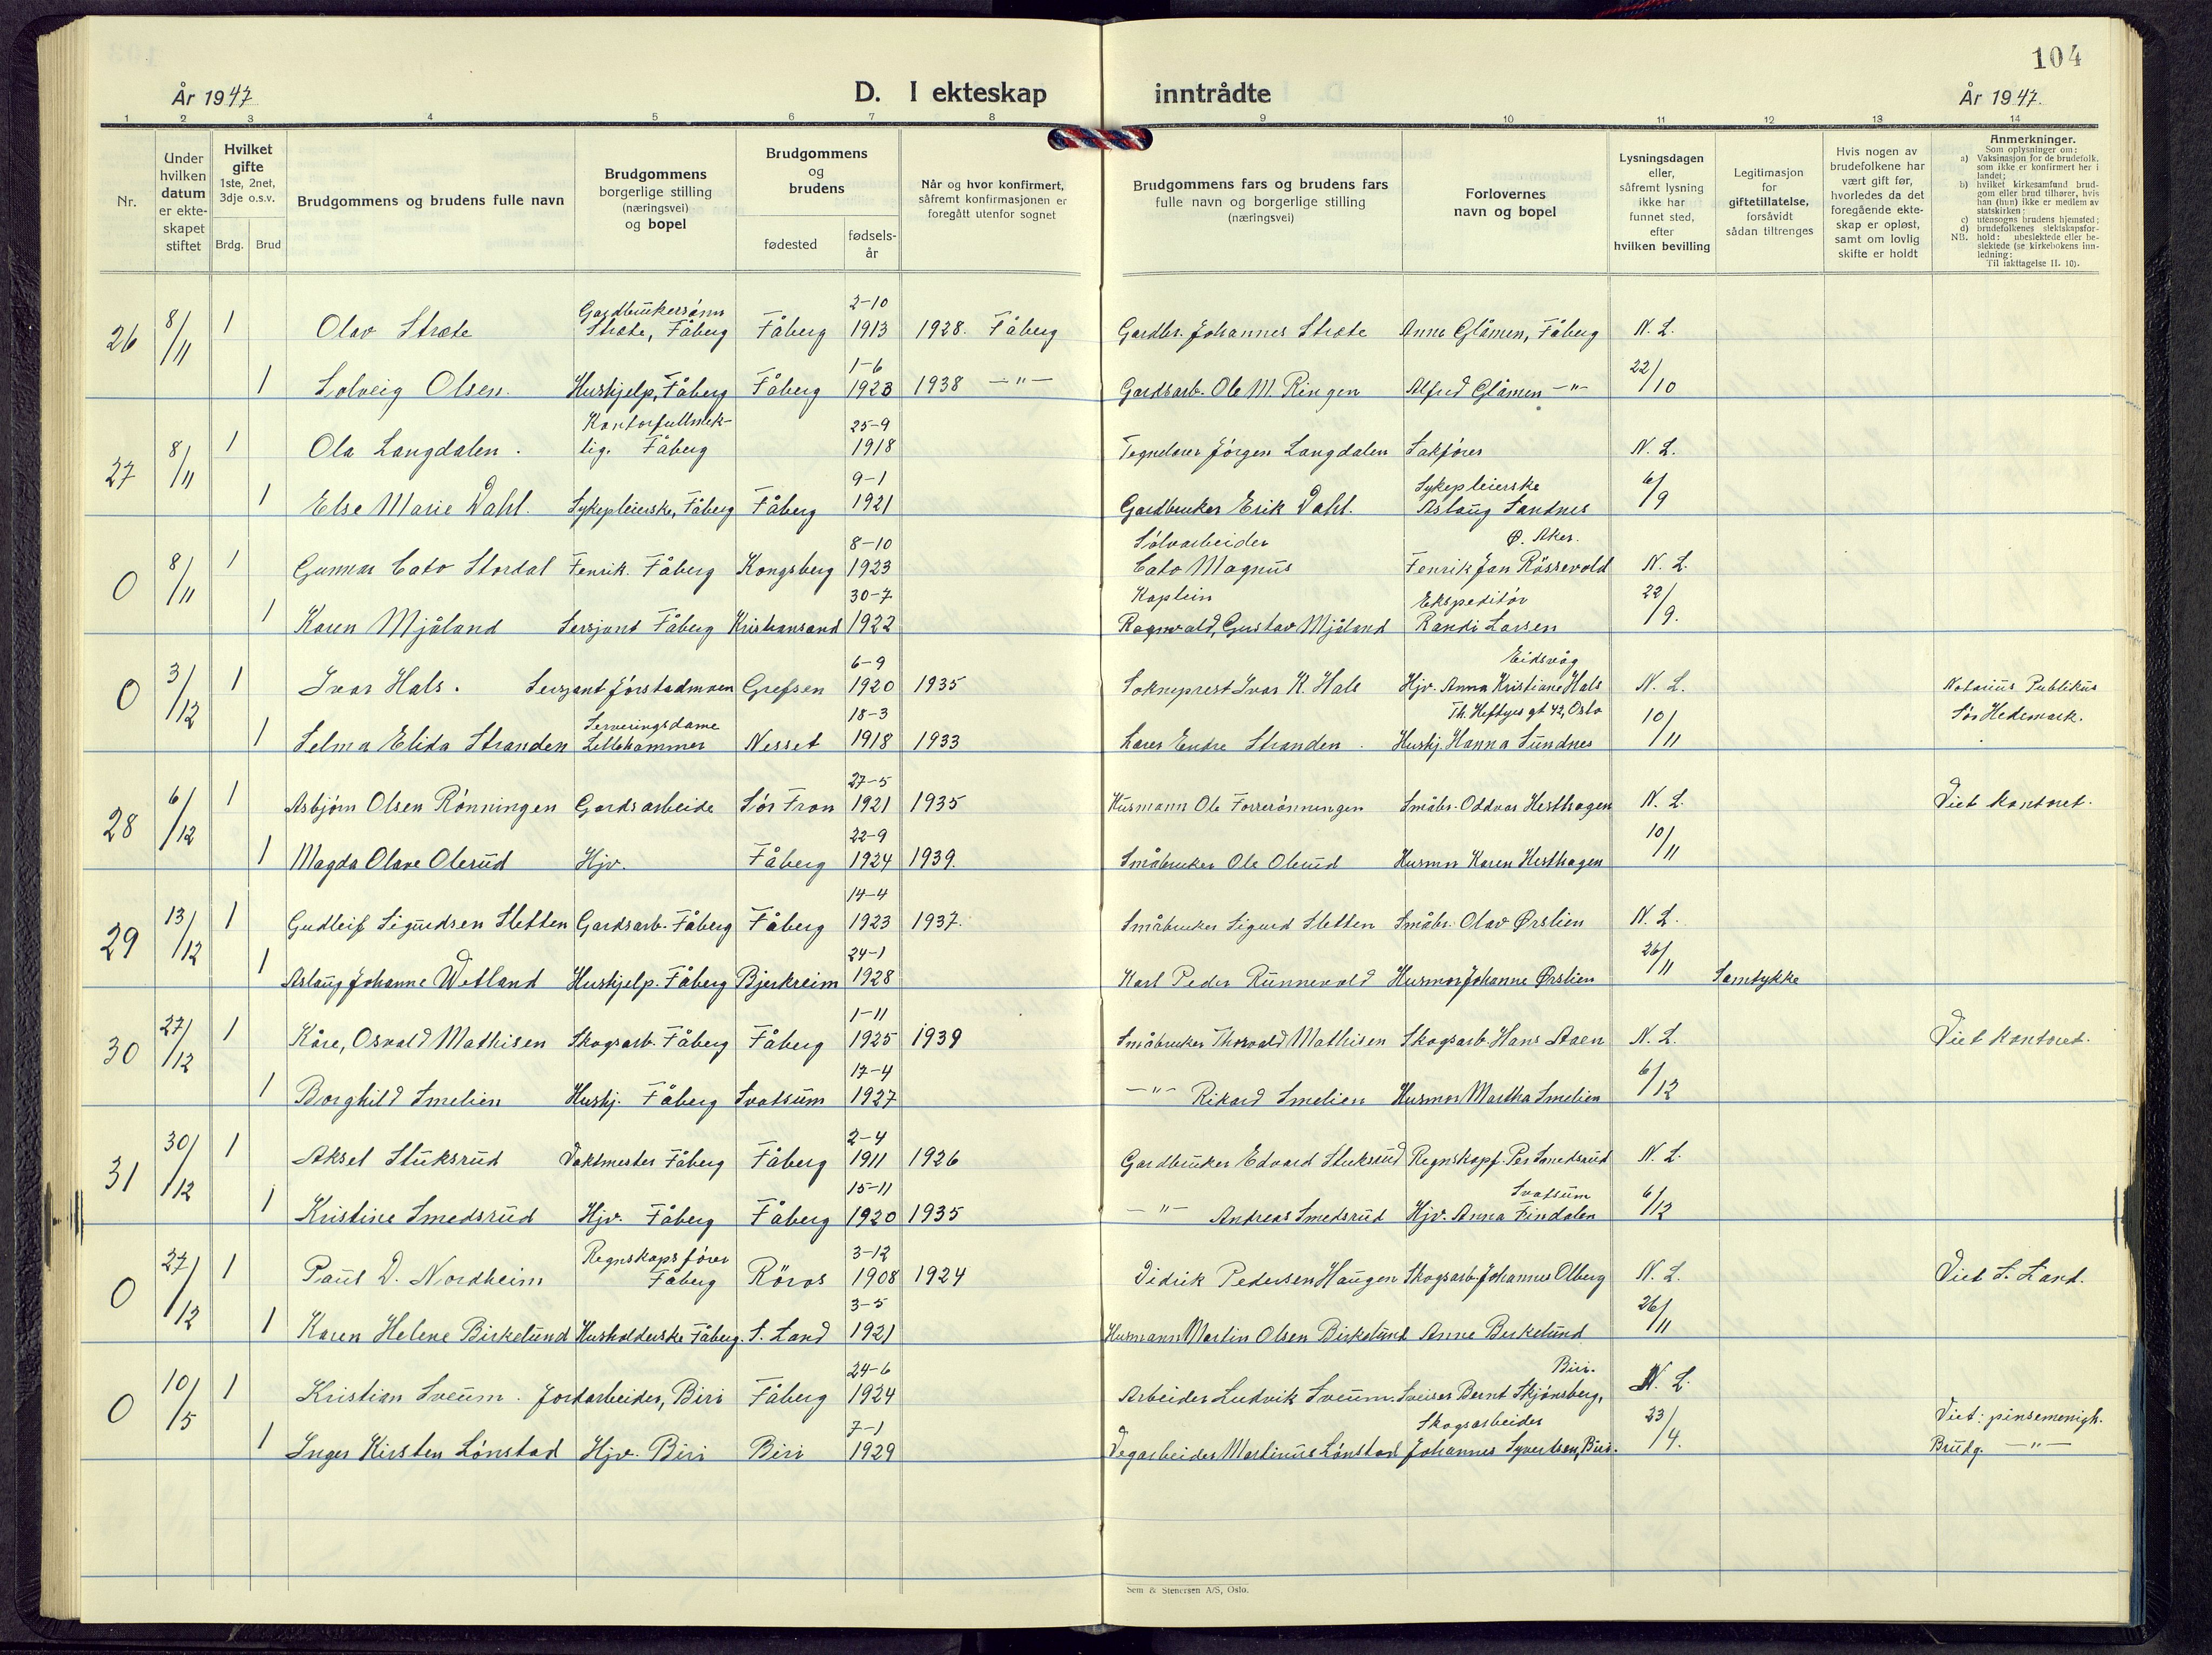 104
År 1947
D. I ekteskap inntrådte
År 1947.
1 2 3 4 5 6 7 8 9 10 11 12 13 14
Nr.
Under hvilken datum er ekte-skapet stiftet
Hvilket gifte 1ste, 2net, 3dje o.s.v.
Brdg. Brud
Brudgommens og brudens fulle navn
Brudgommens borgerlige stilling (næringsvei) og bopel
Brudgommens og brudens
fødested
fødsels-år
Når og hvor konfirmert, såfremt konfirmasjonen er foregått utenfor sognet
Brudgommens fars og brudens fars fulle navn og borgerlige stilling (næringsvei)
Forlovernes navn og bopel
Lysningsdagen eller, såfremt lysning ikke har funnet sted, efter hvilken bevilling
Legitimasjon for giftetillatelse, forsåvidt sådan tiltrenges
Hvis nogen av brudefolkene har vært gift før, hvorledes da det foregående ekte-skap er opløst, samt om lovlig skifte er holdt
Anmerkninger.
Som oplysninger om:
a) Vaksinasjon for de brudefolk, som ikke er konfirmert her i landet;
b) hvilket kirkesamfund brud-gom eller brud tilhører, hvis han (hun) ikke er medlem av statskirken;
c) utensogns brudens hjemsted;
d) brudefolkenes slektskapsfor-hold: ubeslektede eller be-slektede (se kirkebokens inn-ledning:
NB.
Til iakttagelse II. 10).
26 8/11 1 Olav Stræte Gardbrukersønn Stræte, Fåberg Fåberg 2-10 1913 1928. Fåberg Gardbr. Johannes Stræte Anne Glåmen, Fåberg N. L.
1 Solveig Olsen. Hushjelp, Fåberg Fåberg 1-6 1923 1938 —"— Gardsarb. Ole M. Ringen Alfred Glåmen —"— 22/10
27 8/11 1 Ola Langdalen. Kontorfullmek-tig. Fåberg 25-9 1918 Jørgen Langdalen Sakfører N. L.
1 Else Marie Dahl. Sykepleierske, Fåberg Fåberg 9-1 1921 Gardbruker Erik Dahl. Sykepleierske Aslaug Sandnes 6/9
0 8/11 1 Gunnar Cato Stordal Fenrik. Fåberg Kongsberg 8-10 1923 Sølvarbeider Cato Magnus Ø. Aker. Fenrik Jan Rössevold N. L.
1 Karen Mjåland Sersjant Fåberg Kristiansand 30-7 1922 Kaptein Ragnvald, Gustav Mjåland Ekspeditør Randi Larsen 22/9.
0 3/12 1 Ivar Hals. Sersjant Jørstadmoen Grefsen 6-9 1920 1935 Sokneprest Ivar K. Hals Eidsvåg Hjv. Anna Kristiane Hals N. L. Notarius Publikus
1 Selma Elida Stranden Serveringsdame Lillehammer Nesset 18-3 1918 1933 Lærer Endre Stranden. Th. Heftyes gt 42, Oslo Hushj. Hanna Sundnes 10/11 Sør Hedemark.
28 6/12 1 Asbjørn Olsen Rønningen Gardsarbeide Sør Fron 27-5 1921 1935 Husmann Ole Forrerønningen Småbr. Oddvar Hesthagen N. L. Viet kontoret.
1 Magda Olave Olerud Hjv. Fåberg 22-9 1924 1939. Småbruker Ole Olerud Husmor Karen Hesthagen 10/11
29 13/12 1 Gudleif Sigurdsen Sletten Gardsarb. Fåberg Fåberg 14-4 1923 1937. Småbruker Sigurd Sletten Småbr. Olav Ørslien N. L.
1 Aslaug Johanne Wetland Hushjelp. Fåberg Bjerkreim 24-1 1928 Karl Peder Runnevold Husmor Johanne Ørslien 26/11 Samtykke
30 27/12 1 Kåre, Osvald Mathisen Skogsarb. Fåberg Fåberg 1-11 1925 1939 Småbruker Thorvald Mathisen Skogsarb. Hans Aaen N. L. Viet kontoret.
1 Borghild Smelien Hushj. Fåberg Svatsum 17-4 1927 —"— Rikard Smelien Husmor Martha Smelien 6/12
31 30/12 1 Aksel Stuksrud Vaktmester Fåberg Fåberg 2-4 1911 1926 Gardbruker Edvard Stuksrud Regnskapf. Per Smedsrud N. L.
1 Kristine Smedsrud Hjv. Fåberg Fåberg 15-11 1920 1935 —"— Andreas Smedsrud Svatsum Hjv. Anna Findalen 6/12
0 27/12 1 Paul D. Nordheim Regnskapsfører Fåberg Röros 3-12 1908 1924 Didrik Pedersen Haugen Skogsarb. Johannes Olberg N. L. Viet S. Land.
1 Karen Helene Birkelund Husholderske Fåberg. S. Land 3-5 1921 Husmann Martin Olsen Birkelund Anne Birkelund 26/11
0 10/5 1 Kristian Sveum. Jordarbeider, Biri Fåberg 24-6 1924 Arbeider Ludvik Sveum. Biri. Sveiser Bernt Skjønsberg, N. L.
1 Inger Kirsten Lönstad Hjv. Biri Biri 7-1 1929 Vegarbeider Martinus Lönstad Skogsarbeider Johannes Syvertsen, Biri. 23/4. Viet: pinsemenigh. Brudg. —"—
Sem & Stenersen A/S, Oslo.